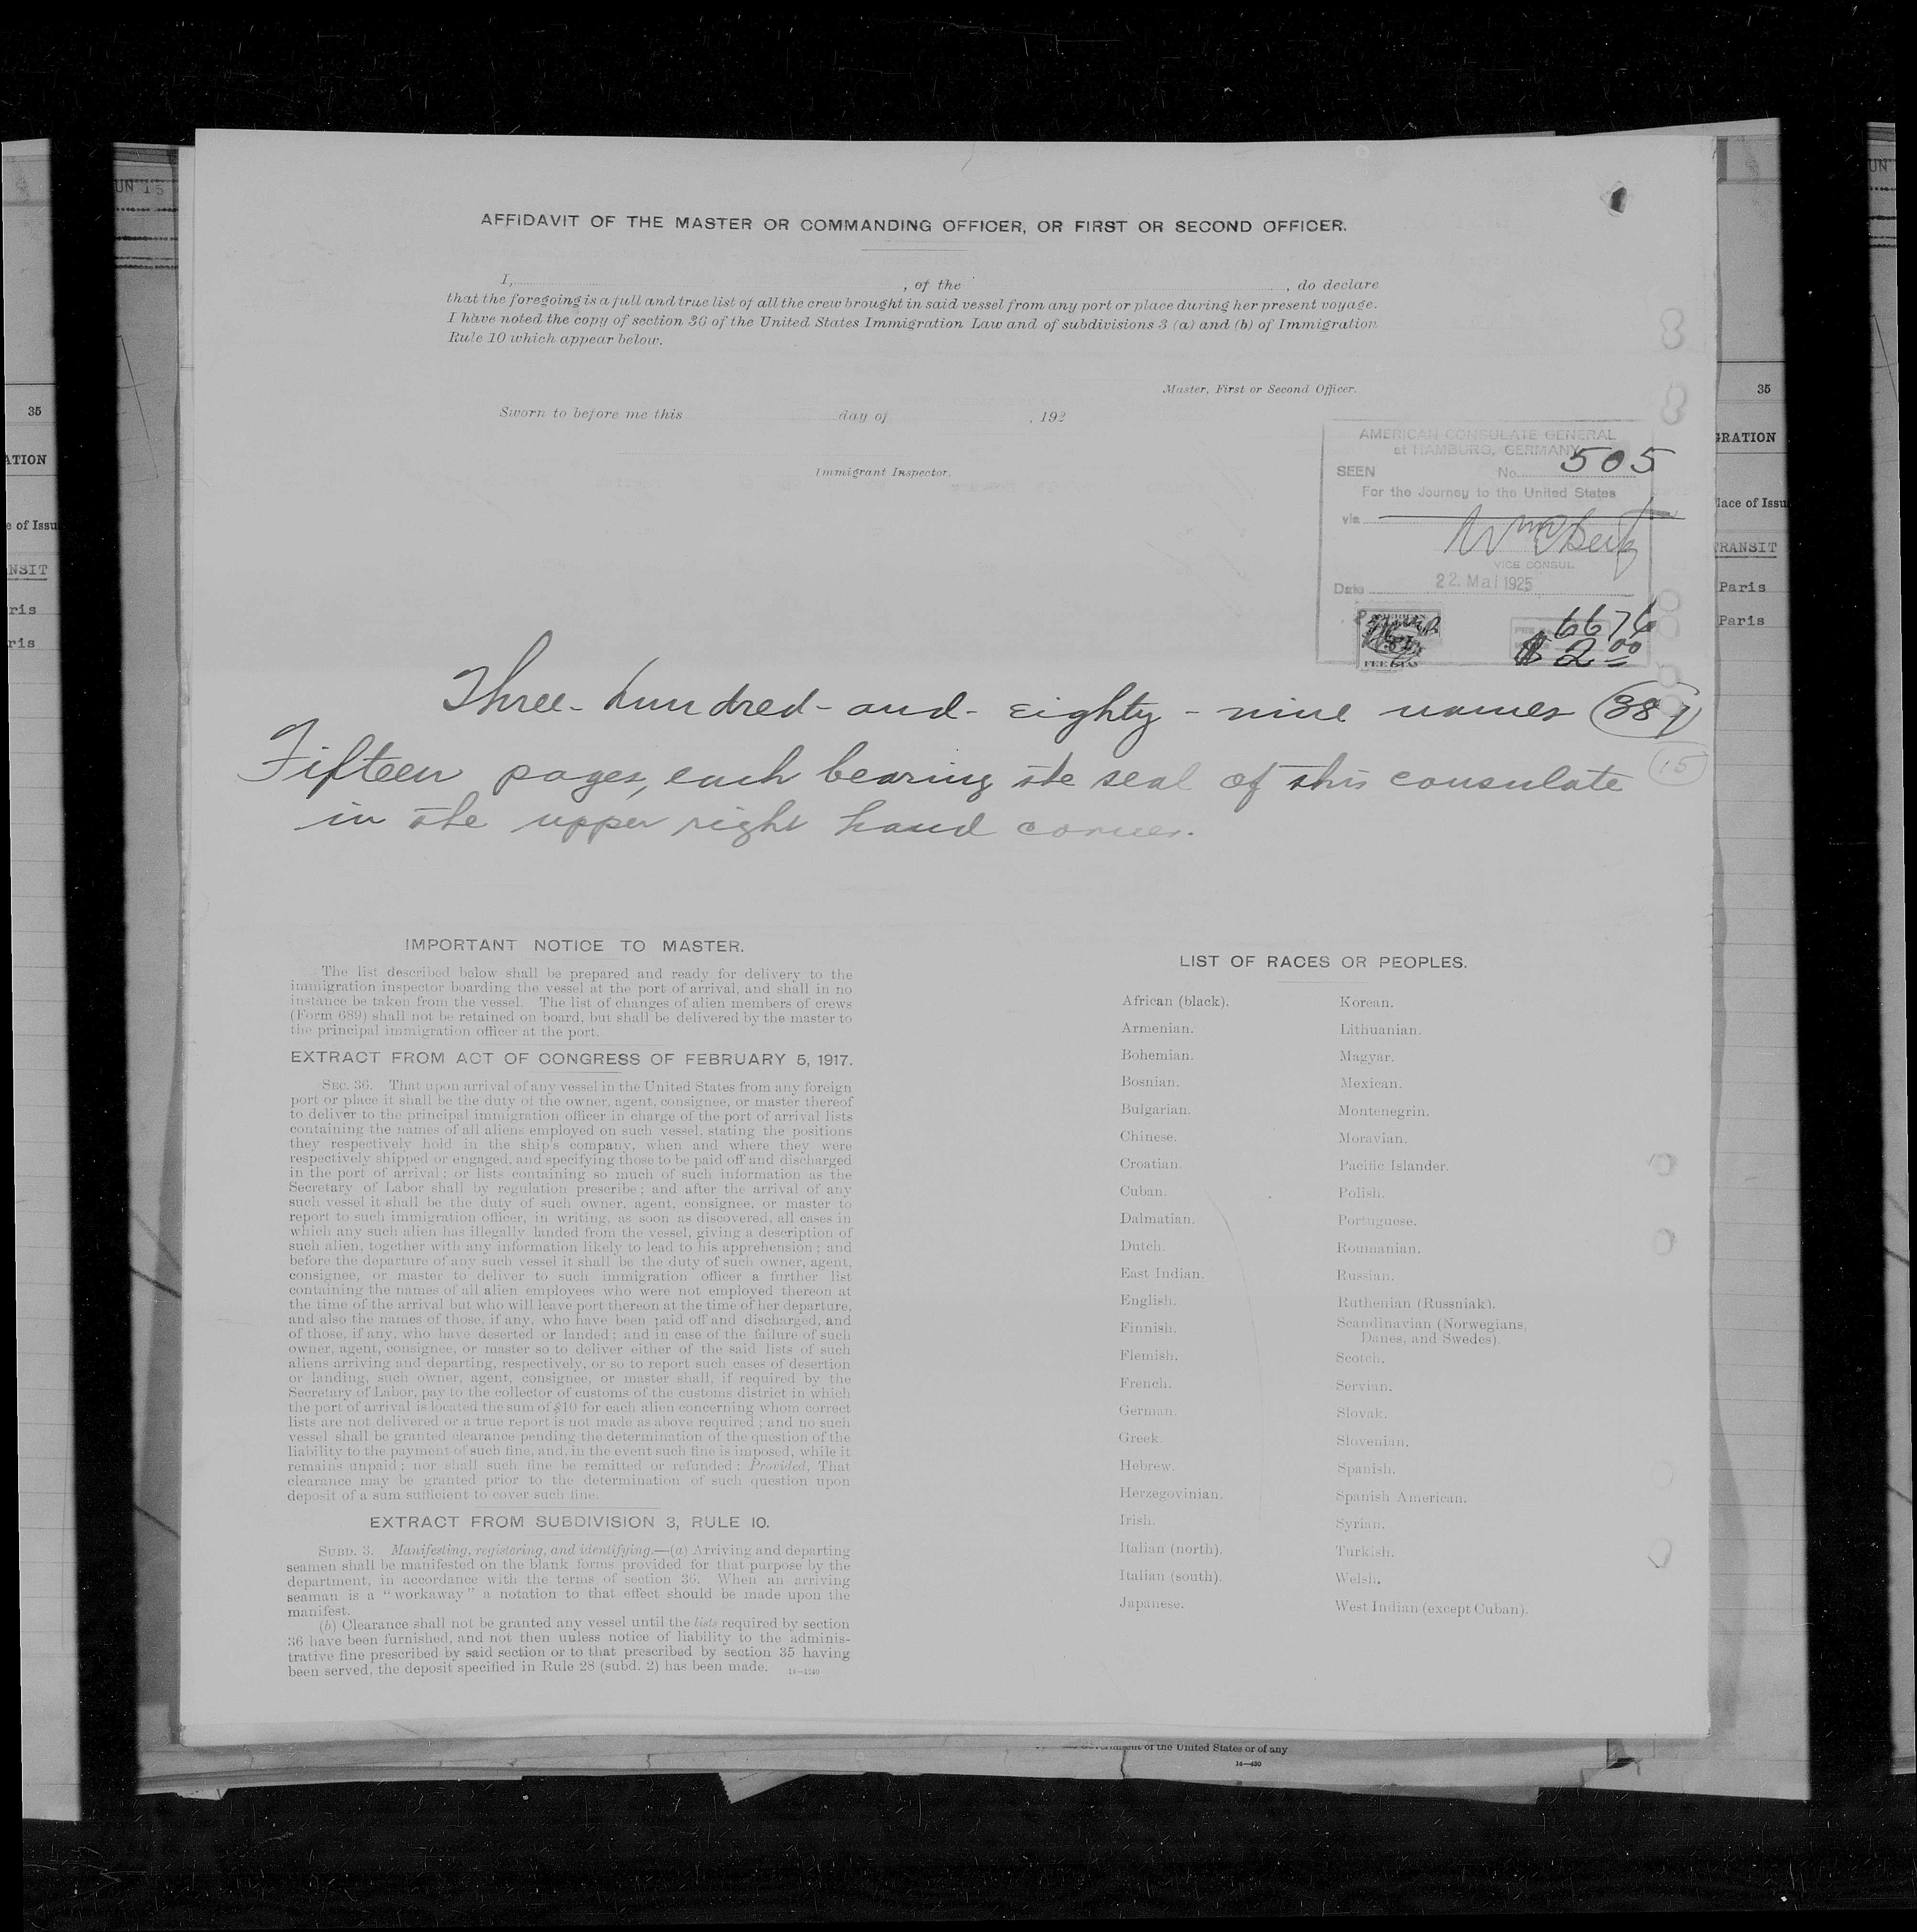 UN 15
AFFIDAVIT OF THE MASTER OR COMMANDING OFFICER, OR FIRST OR SECOND OFFICER.
I, , of the , do declare
that the foregoing is a full and true list of all the crew brought in said vessel from any port or place during her present voyage.
I have noted the copy of section 36 of the United States Immigration Law and of subdivisions 3 (a) and (b) of Immigration
Rule 10 which appear below.
Master, First or Second Officer.
Sworn to before me this day of , 192
Immigrant Inspector.
AMERICAN CONSULATE GENERAL
at HAMBURG, GERMANY
SEEN No. 505
For the Journey to the United States
via
VICE CONSUL
Date 22. Mai 1925
6676
$ 2.00
Three-hundred-and-eighty-nine names (389)
Fifteen pages, each bearing the seal of this consulate (15)
in the upper right hand corner.
IMPORTANT NOTICE TO MASTER.
The list described below shall be prepared and ready for delivery to the
immigration inspector boarding the vessel at the port of arrival, and shall in no
instance be taken from the vessel. The list of changes of alien members of crews
(Form 689) shall not be retained on board, but shall be delivered by the master to
the principal immigration officer at the port.
EXTRACT FROM ACT OF CONGRESS OF FEBRUARY 5, 1917.
SEC. 36. That upon arrival of any vessel in the United States from any foreign
port or place it shall be the duty of the owner, agent, consignee, or master thereof
to deliver to the principal immigration officer in charge of the port of arrival lists
containing the names of all aliens employed on such vessel, stating the positions
they respectively hold in the ship's company, when and where they were
respectively shipped or engaged, and specifying those to be paid off and discharged
in the port of arrival; or lists containing so much of such information as the
Secretary of Labor shall by regulation prescribe; and after the arrival of any
such vessel it shall be the duty of such owner, agent, consignee, or master to
report to such immigration officer, in writing, as soon as discovered, all cases in
which any such alien has illegally landed from the vessel, giving a description of
such alien, together with any information likely to lead to his apprehension; and
before the departure of any such vessel it shall be the duty of such owner, agent,
consignee, or master to deliver to such immigration officer a further list
containing the names of all alien employees who were not employed thereon at
the time of the arrival but who will leave port thereon at the time of her departure,
and also the names of those, if any, who have been paid off and discharged, and
of those, if any, who have deserted or landed; and in case of the failure of such
owner, agent, consignee, or master so to deliver either of the said lists of such
aliens arriving and departing, respectively, or so to report such cases of desertion
or landing, such owner, agent, consignee, or master shall, if required by the
Secretary of Labor, pay to the collector of customs of the customs district in which
the port of arrival is located the sum of $10 for each alien concerning whom correct
lists are not delivered or a true report is not made as above required; and no such
vessel shall be granted clearance pending the determination of the question of the
liability to the payment of such fine, and, in the event such fine is imposed, while it
remains unpaid; nor shall such fine be remitted or refunded: Provided, That
clearance may be granted prior to the determination of such question upon
deposit of a sum sufficient to cover such fine.
EXTRACT FROM SUBDIVISION 3, RULE 10.
SUBD. 3. Manifesting, registering, and identifying.—(a) Arriving and departing
seamen shall be manifested on the blank forms provided for that purpose by the
department, in accordance with the terms of section 36. When an arriving
seaman is a "workaway" a notation to that effect should be made upon the
manifest.
(b) Clearance shall not be granted any vessel until the lists required by section
36 have been furnished, and not then unless notice of liability to the adminis-
trative fine prescribed by said section or to that prescribed by section 35 having
been served, the deposit specified in Rule 28 (subd. 2) has been made. 14—1240
LIST OF RACES OR PEOPLES.
African (black).
Armenian.
Bohemian.
Bosnian.
Bulgarian.
Chinese.
Croatian.
Cuban.
Dalmatian.
Dutch.
East Indian.
English.
Finnish.
Flemish.
French.
German.
Greek.
Hebrew.
Herzegovinian.
Irish.
Italian (north).
Italian (south).
Japanese.
Korean.
Lithuanian.
Magyar.
Mexican.
Montenegrin.
Moravian.
Pacific Islander.
Polish.
Portuguese.
Roumanian.
Russian.
Ruthenian (Russniak).
Scandinavian (Norwegians,
Danes, and Swedes).
Scotch.
Servian.
Slovak.
Slovenian.
Spanish.
Spanish American.
Syrian.
Turkish.
Welsh.
West Indian (except Cuban).
of the United States or of any
14—430
35
ATION
e of Issu
NSIT
ris
ris
35
GRATION
lace of Issu
TRANSIT
Paris
Paris
UN